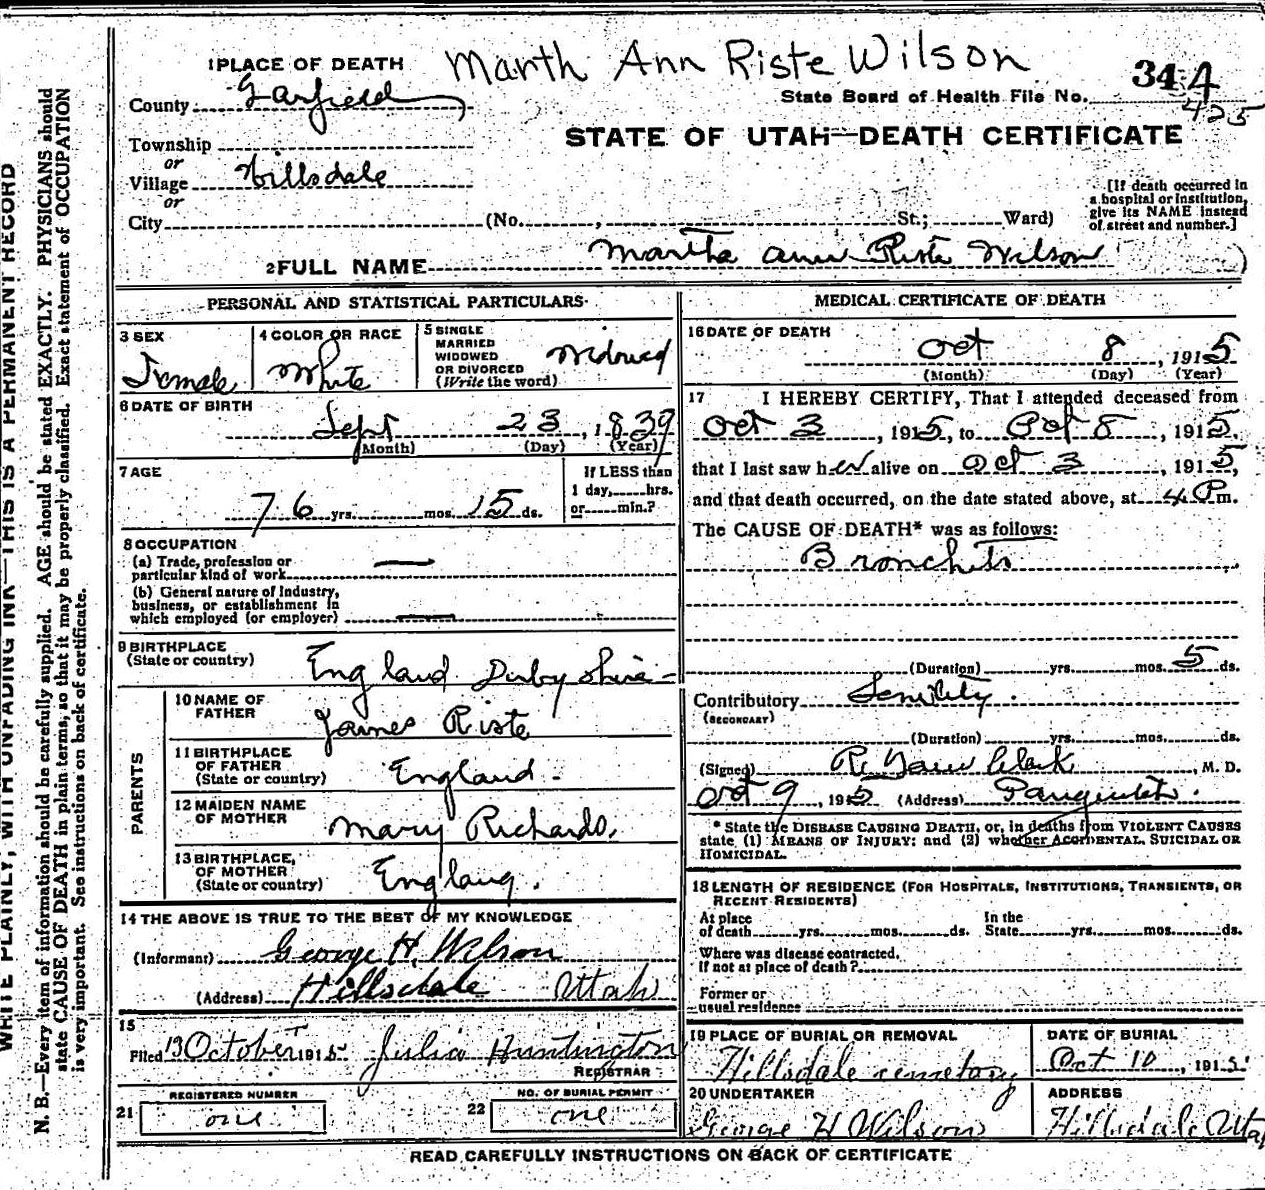 Marth Ann Riste Wilson
1 PLACE OF DEATH
344
State Board of Health File No.
425
County Garfield
STATE OF UTAH—DEATH CERTIFICATE
Township
or
Village Hillsdale
or
City (No. , St.; Ward)
[If death occurred in
a hospital or institution,
give its NAME instead
of street and number.]
2 FULL NAME Martha Ann Riste Wilson
PERSONAL AND STATISTICAL PARTICULARS
3 SEX
Female
4 COLOR OR RACE
White
5 SINGLE
MARRIED
WIDOWED
OR DIVORCED
(Write the word)
Widowed
6 DATE OF BIRTH
Sept 23, 1839
(Month) (Day) (Year)
7 AGE
76 yrs. mos. 15 ds.
If LESS than
1 day, hrs.
or min.?
8 OCCUPATION
(a) Trade, profession or
particular kind of work —
(b) General nature of Industry,
business, or establishment in
which employed (or employer) —
9 BIRTHPLACE
(State or country)
England Derby Shire -
PARENTS
10 NAME OF
FATHER
James Riste
11 BIRTHPLACE
OF FATHER
(State or country)
England.
12 MAIDEN NAME
OF MOTHER
Mary Richards.
13 BIRTHPLACE,
OF MOTHER
(State or country)
England.
14 THE ABOVE IS TRUE TO THE BEST OF MY KNOWLEDGE
(Informant) George H. Wilson
(Address) Hillsdale Utah
15
Filed 13 October 1915 Julia Huntington
REGISTRAR
REGISTERED NUMBER
21 one
NO. OF BURIAL PERMIT
22 one
MEDICAL CERTIFICATE OF DEATH
16 DATE OF DEATH
Oct 8, 1915
(Month) (Day) (Year)
17 I HEREBY CERTIFY, That I attended deceased from
Oct 3, 1915, to Oct 8, 1915,
that I last saw her alive on Oct 3, 1915,
and that death occurred, on the date stated above, at 4 P m.
The CAUSE OF DEATH* was as follows:
Bronchitis
(Duration) yrs. mos. 5 ds.
Contributory Senility.
(SECONDARY)
(Duration) yrs. mos. ds.
(Signed) R. Clark, M. D.
Oct 9, 1915 (Address) Panguitch.
* State the DISEASE CAUSING DEATH, or, in deaths from VIOLENT CAUSES
state (1) MEANS OF INJURY; and (2) whether ACCIDENTAL, SUICIDAL OR
HOMICIDAL.
18 LENGTH OF RESIDENCE (FOR HOSPITALS, INSTITUTIONS, TRANSIENTS, OR
RECENT RESIDENTS)
At place
of death yrs. mos. ds.
In the
State yrs. mos. ds.
Where was disease contracted,
if not at place of death?
Former or
usual residence
19 PLACE OF BURIAL OR REMOVAL
Hillsdale cemetary
DATE OF BURIAL
Oct 10, 1915
20 UNDERTAKER
George H Wilson
ADDRESS
Hillsdale Uta
READ CAREFULLY INSTRUCTIONS ON BACK OF CERTIFICATE
WRITE PLAINLY, WITH UNFADING INK—THIS IS A PERMANENT RECORD
N. B.—Every item of information should be carefully supplied. AGE should be stated EXACTLY. PHYSICIANS should
state CAUSE OF DEATH in plain terms, so that it may be properly classified. Exact statement of OCCUPATION
is very important. See instructions on back of certificate.